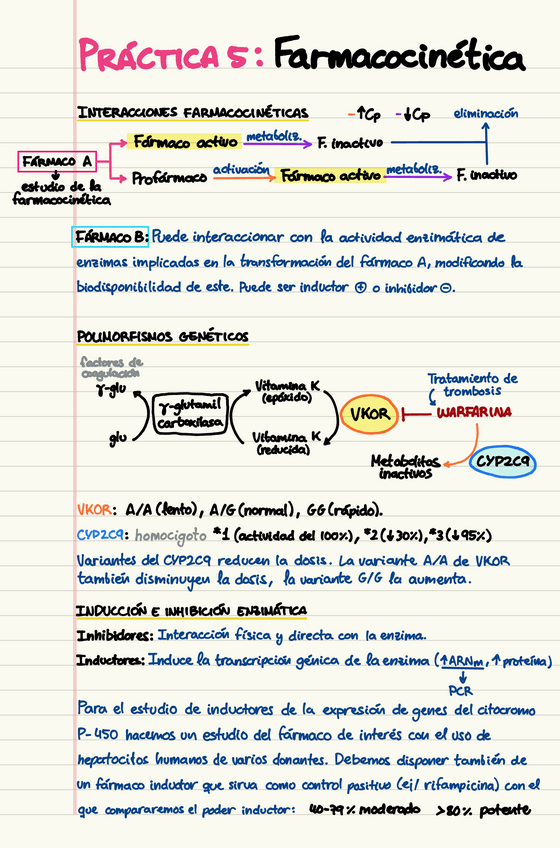 PRÁCTICA 5: Farmacocinética
INTERACCIONES FARMACOCINÉTICAS -↑Cp -↓Cp eliminación
Fármaco activo metaboliz. F. inactivo
FÁRMACO A
Profármaco activación Fármaco activo metaboliz. F. inactivo
estudio de la
farmacocinética
FÁRMACO B: Puede interaccionar con la actividad enzimática de
enzimas implicadas en la transformación del fármaco A, modificando la
biodisponibilidad de este. Puede ser inductor ⊕ o inhibidor ⊖.
POLIMORFISMOS GENÉTICOS
factores de
coagulación
γ-glu
glu
γ-glutamil
carboxilasa
Vitamina K
(epóxido)
Vitamina K
(reducida)
VKOR
Tratamiento de
trombosis
WARFARINA
Metabolitos
inactivos
CYP2C9
VKOR: A/A (lento), A/G (normal), GG (rápido).
CYP2C9: homocigoto *1 (actividad del 100%), *2 (↓30%), *3 (↓95%)
Variantes del CYP2C9 reducen la dosis. La variante A/A de VKOR
también disminuyen la dosis, la variante G/G la aumenta.
INDUCCIÓN E INHIBICIÓN ENZIMÁTICA
Inhibidores: Interacción física y directa con la enzima.
Inductores: Induce la transcripción génica de la enzima (↑ARNm, ↑proteína)
PCR
Para el estudio de inductores de la expresión de genes del citocromo
P-450 hacemos un estudio del fármaco de interés con el uso de
hepatocitos humanos de varios donantes. Debemos disponer también de
un fármaco inductor que sirva como control positivo (ej/ rifampicina) con el
que compararemos el poder inductor: 40-79% moderado >80% potente